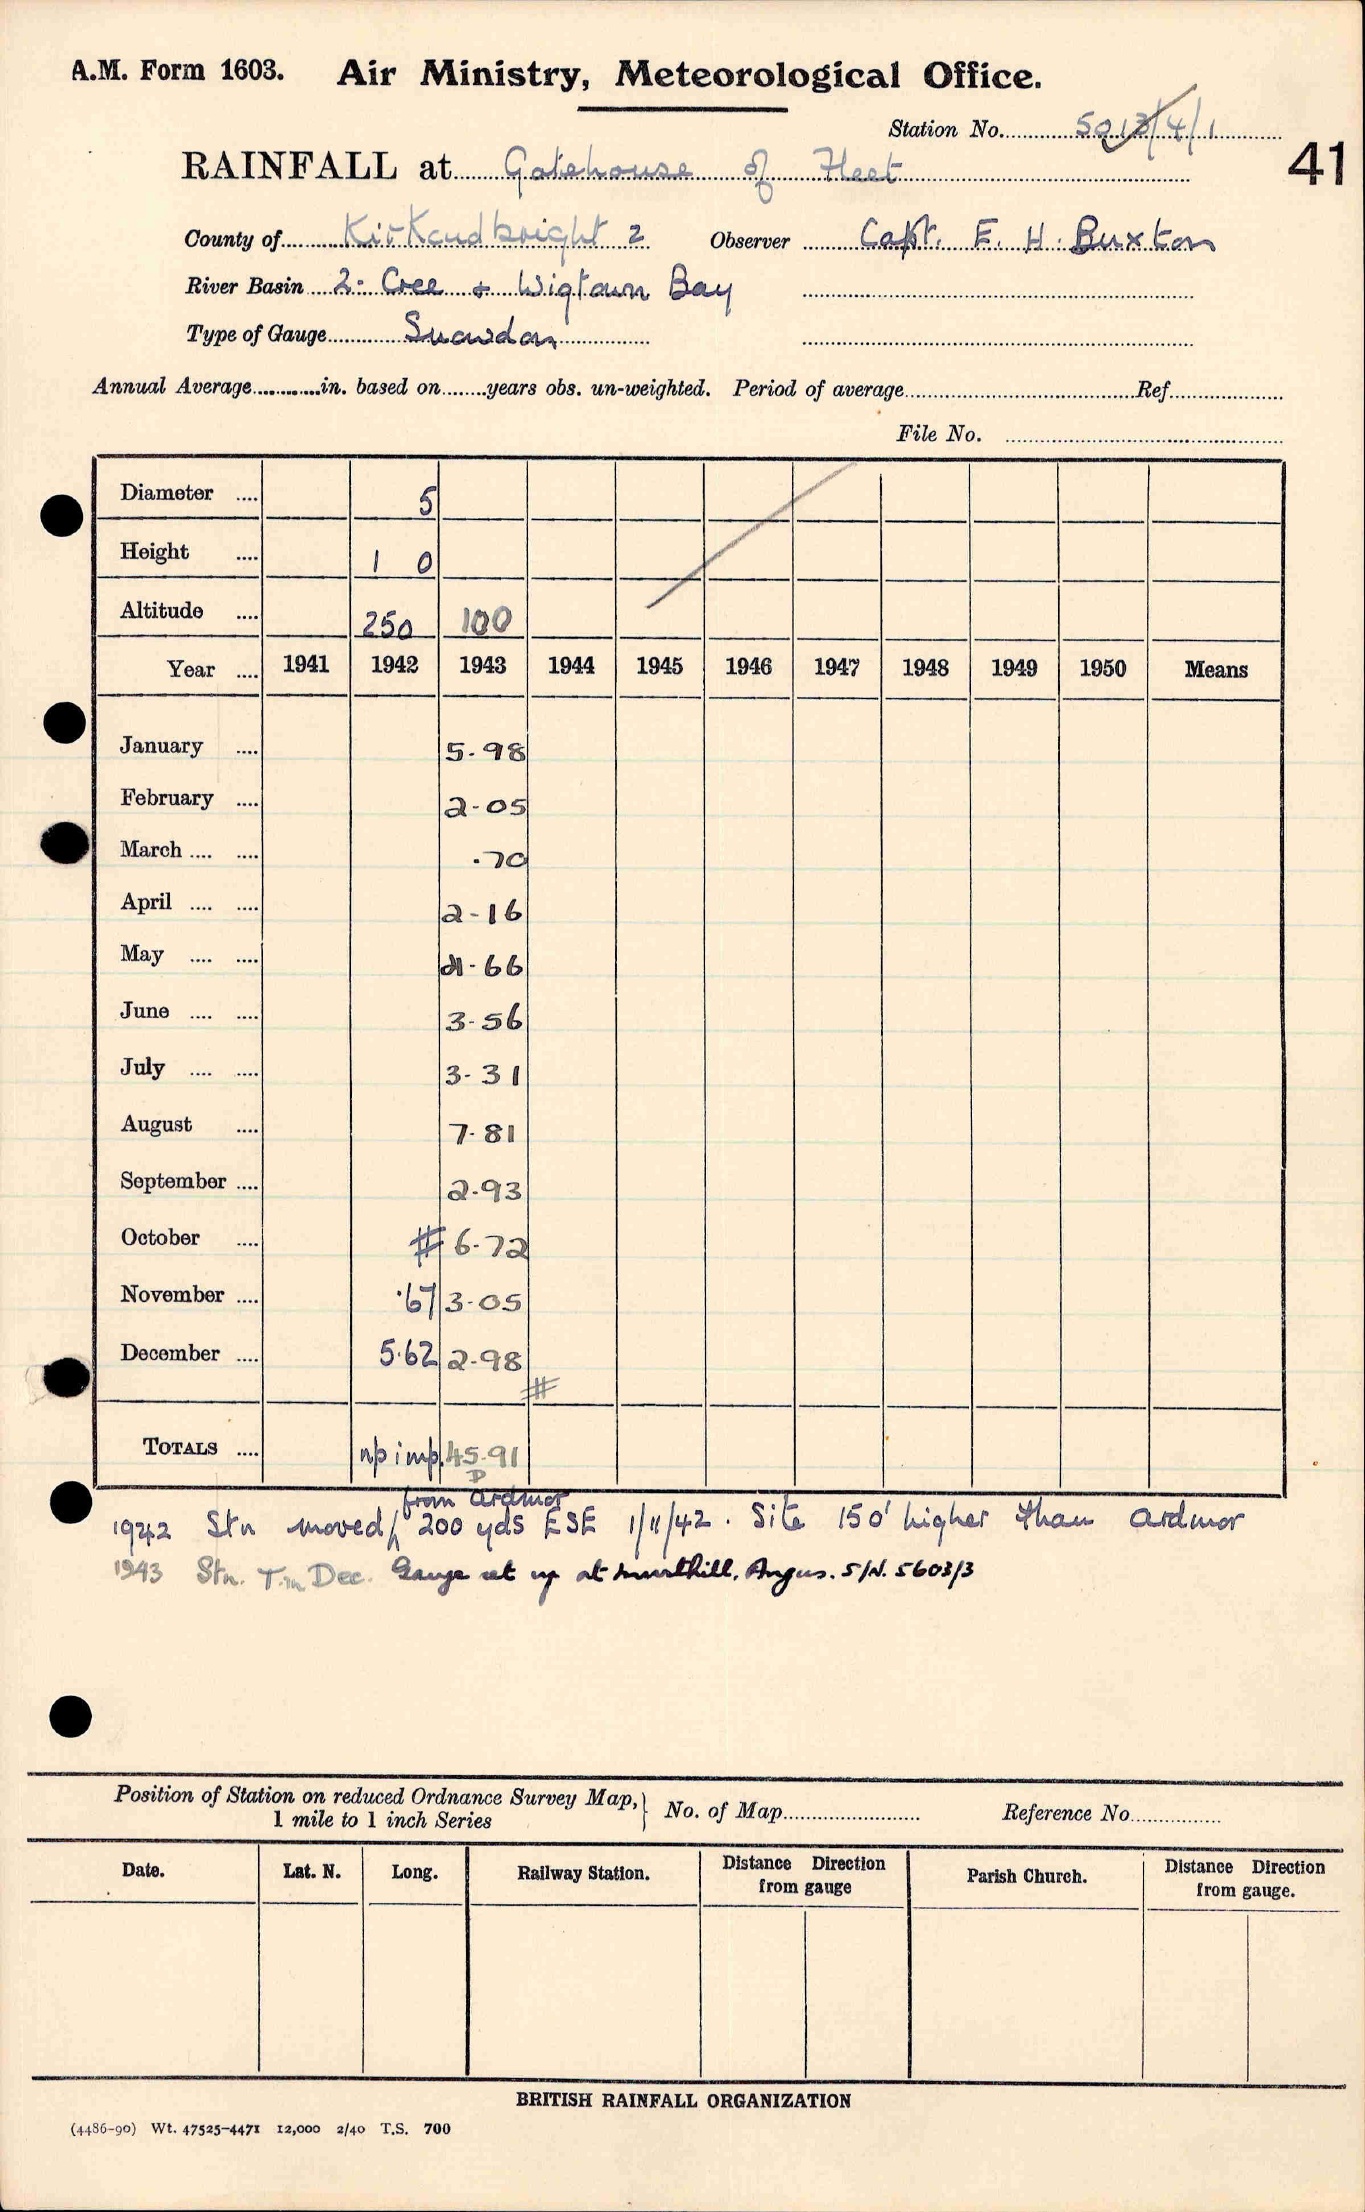 A.M. Form 1603. Air Ministry, Meteorological Office.
Station No. 5013/4/1
41
RAINFALL at Gatehouse of Fleet
County of Kirkcudbright 2 Observer Capt. E. H. Buxton
River Basin 2. Cree + Wigtown Bay
Type of Gauge Snowdon
Annual Average in. based on years obs. un-weighted. Period of average Ref
File No.
Diameter 5
Height 1 0
Altitude 250 100
Year 1941 1942 1943 1944 1945 1946 1947 1948 1949 1950 Means
January 5.98
February 2.05
March .70
April 2.16
May .66
June 3.56
July 3.31
August 7.81
September 2.93
October # 6.72
November .67 3.05
December 5.62 2.98
#
TOTALS np imp. 45.91
D
from Ardmor
1942 Stn moved 200 yds ESE 1/11/42. Site 150' higher than Ardmor
1943 Stn. T. in Dec. Gauge set up at Angus. S/N. 5603/3
Position of Station on reduced Ordnance Survey Map, No. of Map Reference No.
1 mile to 1 inch Series
Date. Lat. N. Long. Railway Station. Distance Direction from gauge Parish Church. Distance Direction from gauge.
BRITISH RAINFALL ORGANIZATION
(4486-90) Wt. 47525-4471 12,000 2/40 T.S. 700